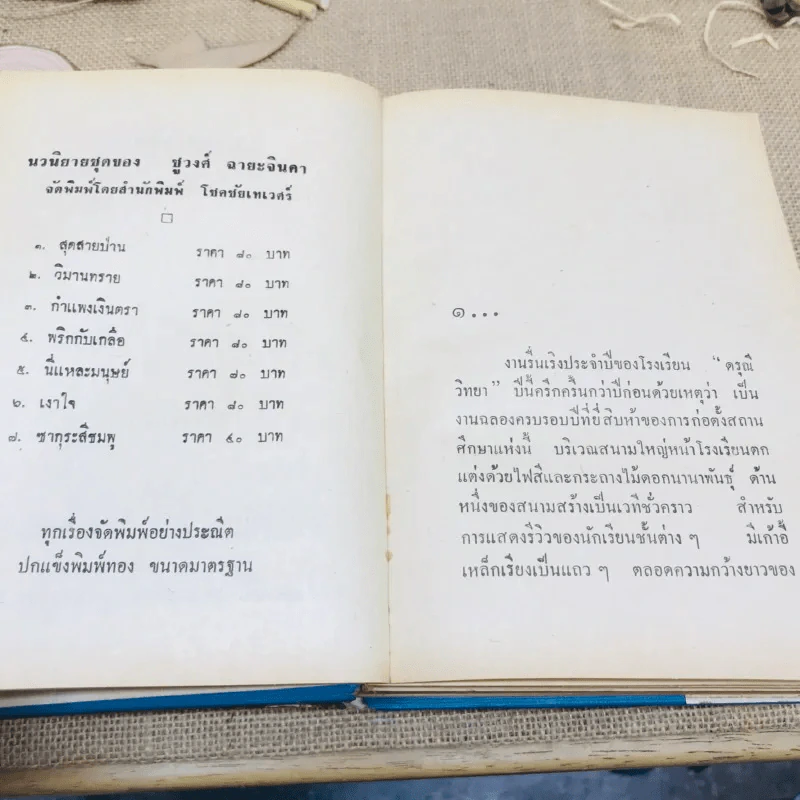 นวนิยายชุดของ ชูวงศ์ ฉายะจินดา
จัดพิมพ์โดยสำนักพิมพ์ โชคชัยเทเวศร์
๑. สุดสายป่าน ราคา ๘๐ บาท
๒. วิมานทราย ราคา ๘๐ บาท
๓. กำแพงเงินตรา ราคา ๘๐ บาท
๔. พริกกับเกลือ ราคา ๘๐ บาท
๕. นี่แหละมนุษย์ ราคา ๘๐ บาท
๖. เงาใจ ราคา ๘๐ บาท
๗. ซากุระสีชมพู ราคา ๕๐ บาท
ทุกเรื่องจัดพิมพ์อย่างประณีต
ปกแข็งพิมพ์ทอง ขนาดมาตรฐาน
๑...
งานรื่นเริงประจำปีของโรงเรียน “ดรุณี
วิทยา” ปีนี้ครึกครื้นกว่าปีก่อนด้วยเหตุว่า เป็น
งานฉลองครบรอบปีที่ยี่สิบห้าของการก่อตั้งสถาน
ศึกษาแห่งนี้ บริเวณสนามใหญ่หน้าโรงเรียนตก
แต่งด้วยไฟสีและกระถางไม้ดอกนานาพันธุ์ ด้าน
หนึ่งของสนามสร้างเป็นเวทีชั่วคราว สำหรับ
การแสดงรีวิวของนักเรียนชั้นต่าง ๆ มีเก้าอี้
เหล็กเรียงเป็นแถว ๆ ตลอดความกว้างยาวของ